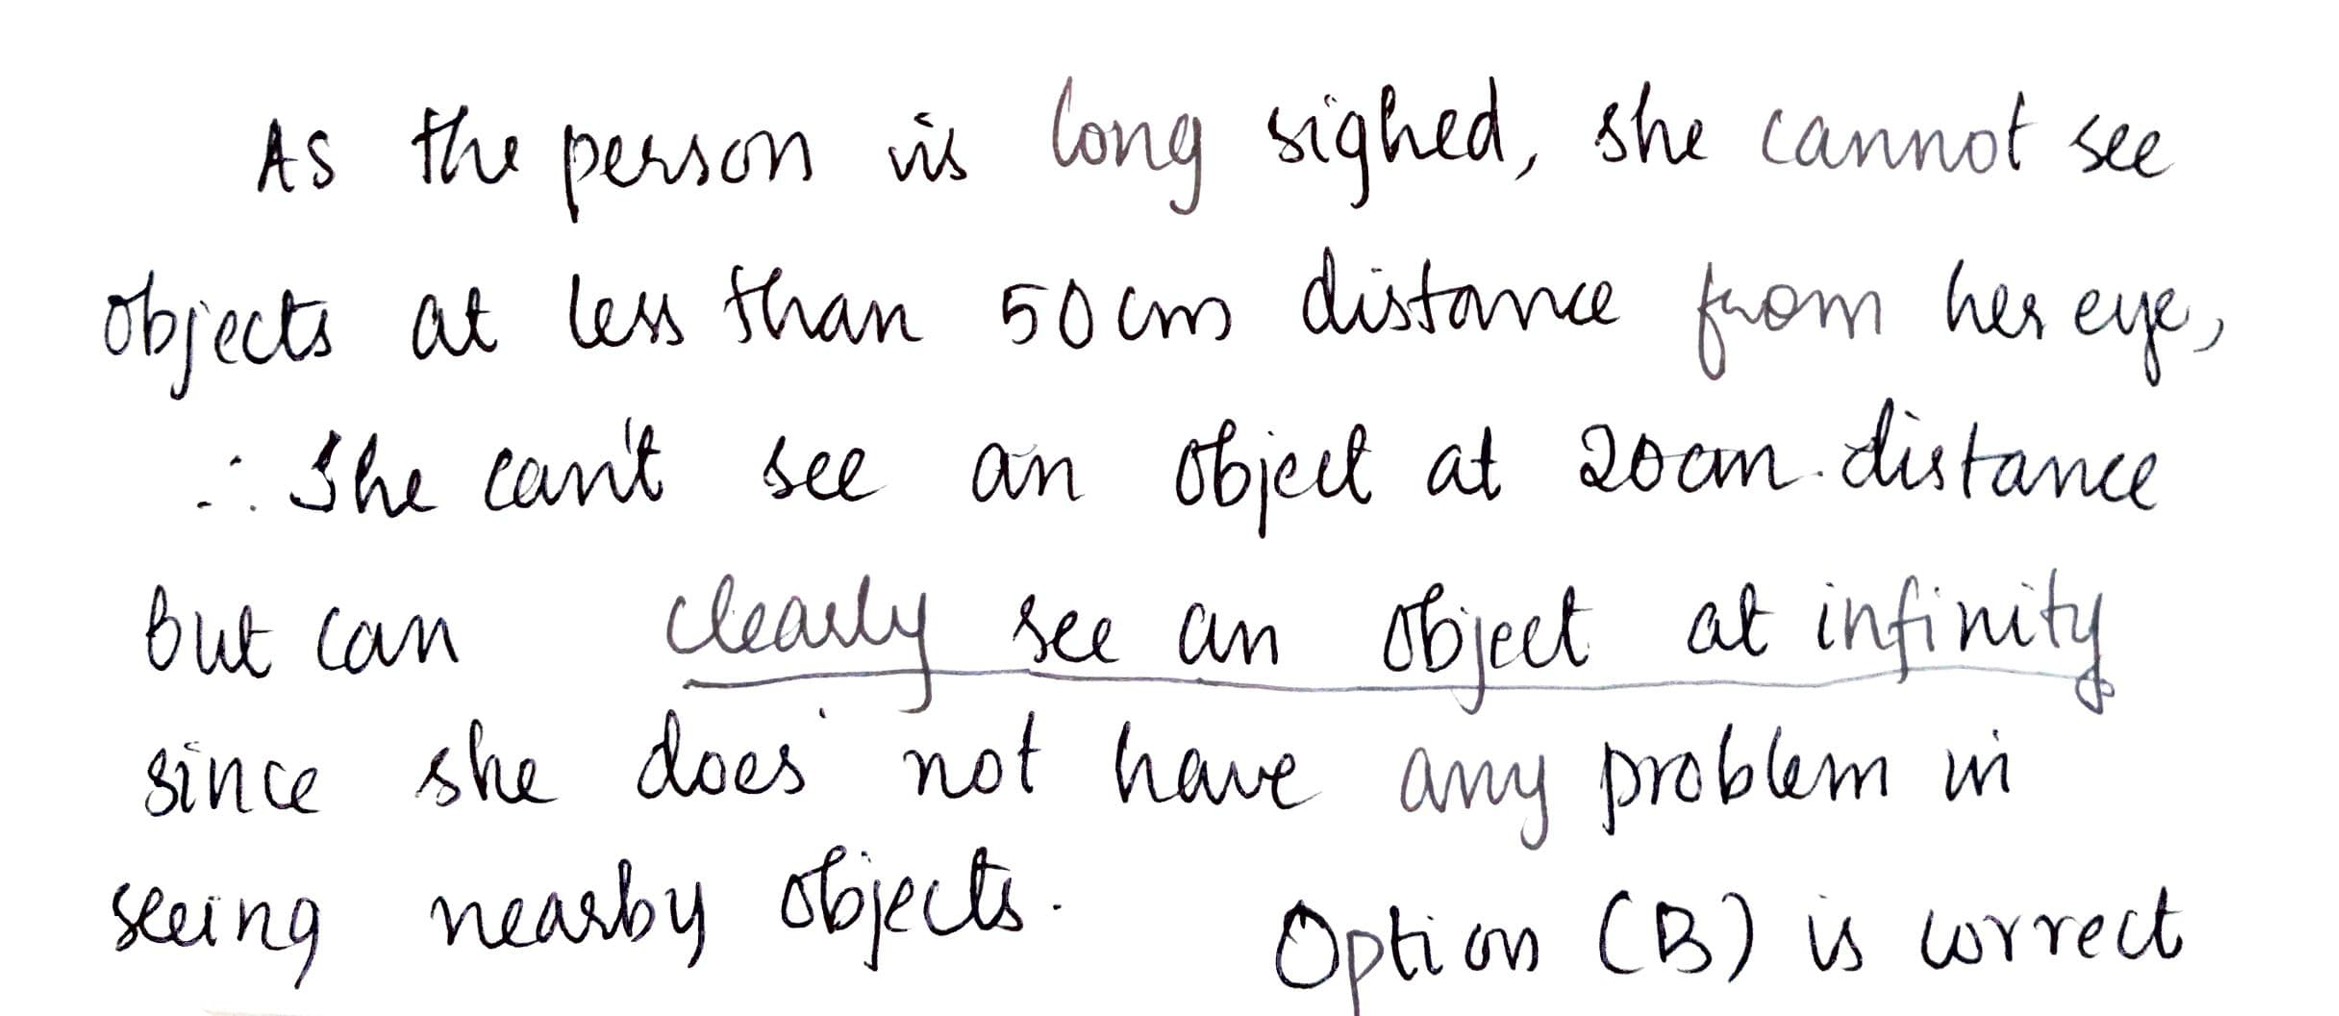 As the person is long sighed, she cannot see
objects at less than 50cm distance from her eye,
∴ She can't see an object at 20cm. distance
but can clearly see an object at infinity
since she does not have any problem in
seeing nearby objects. Option (B) is correct